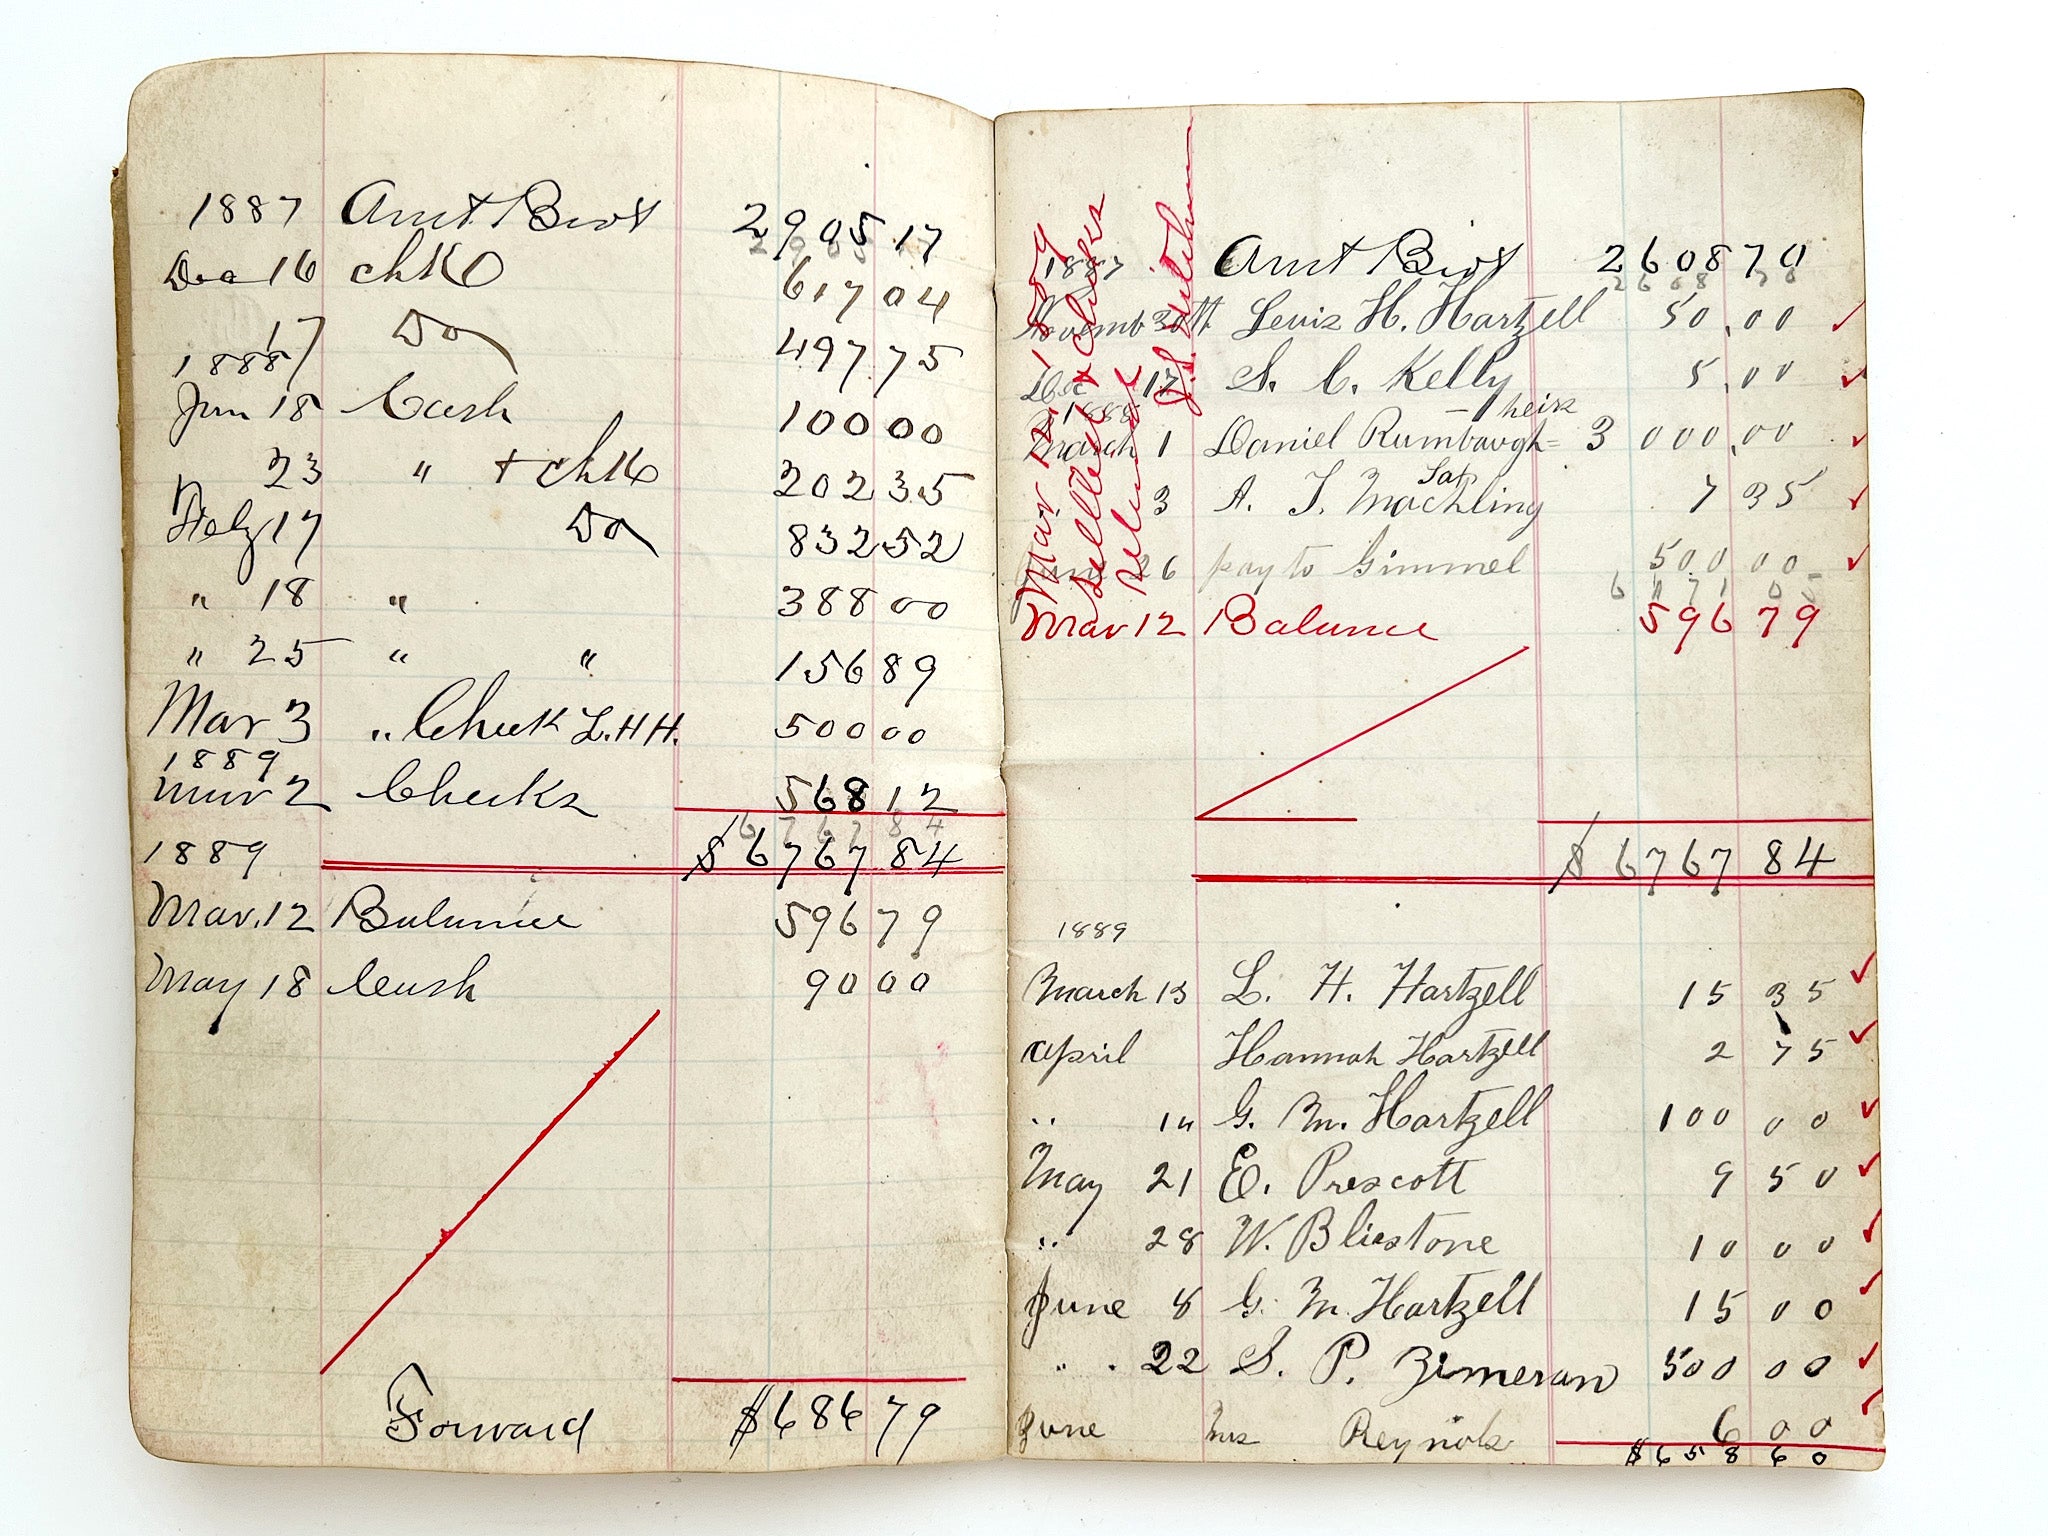 1887 Amt Brot 2905 17
Dec 16 chks 617 04
17 Do 497 75
1888
Jan 18 Cash 100 00
23 " + chks 202 35
Feb 17 Do 832 52
" 18 " 388 00
" 25 " " 156 89
Mar 3 " Check L.H.H. 500 00
1889
Mar 2 Checks 568 12
6767 84
1889 $6767 84
Mar. 12 Balance 596 79
May 18 Cash 90 00
Forward $686 79
Mar 12, 1889
Settled + checks
returned
1887 Amt Brot 2608 70
2608 70
Novemb 30th Lewis H. Hartzell 50.00
Dec 17 S. C. Kelly 5.00
1888
March 1 Daniel Rumbaugh = heirs 3000.00
3 A. J. Mochling 7 35
June 26 pay to Gimmel 500 00
6171 05
Mar 12 Balance 596 79
$6767 84
1889
March 13 L. H. Hartzell 15 35
April Hannah Hartzell 2 75
" 14 G. M. Hartzell 100 00
May 21 E. Prescott 9 50
" 28 W. Bliestone 10 00
June 8 G. M. Hartzell 15 00
" 22 S. P. Zimeran 500 00
June Mrs Reynols 6 00
$658 60